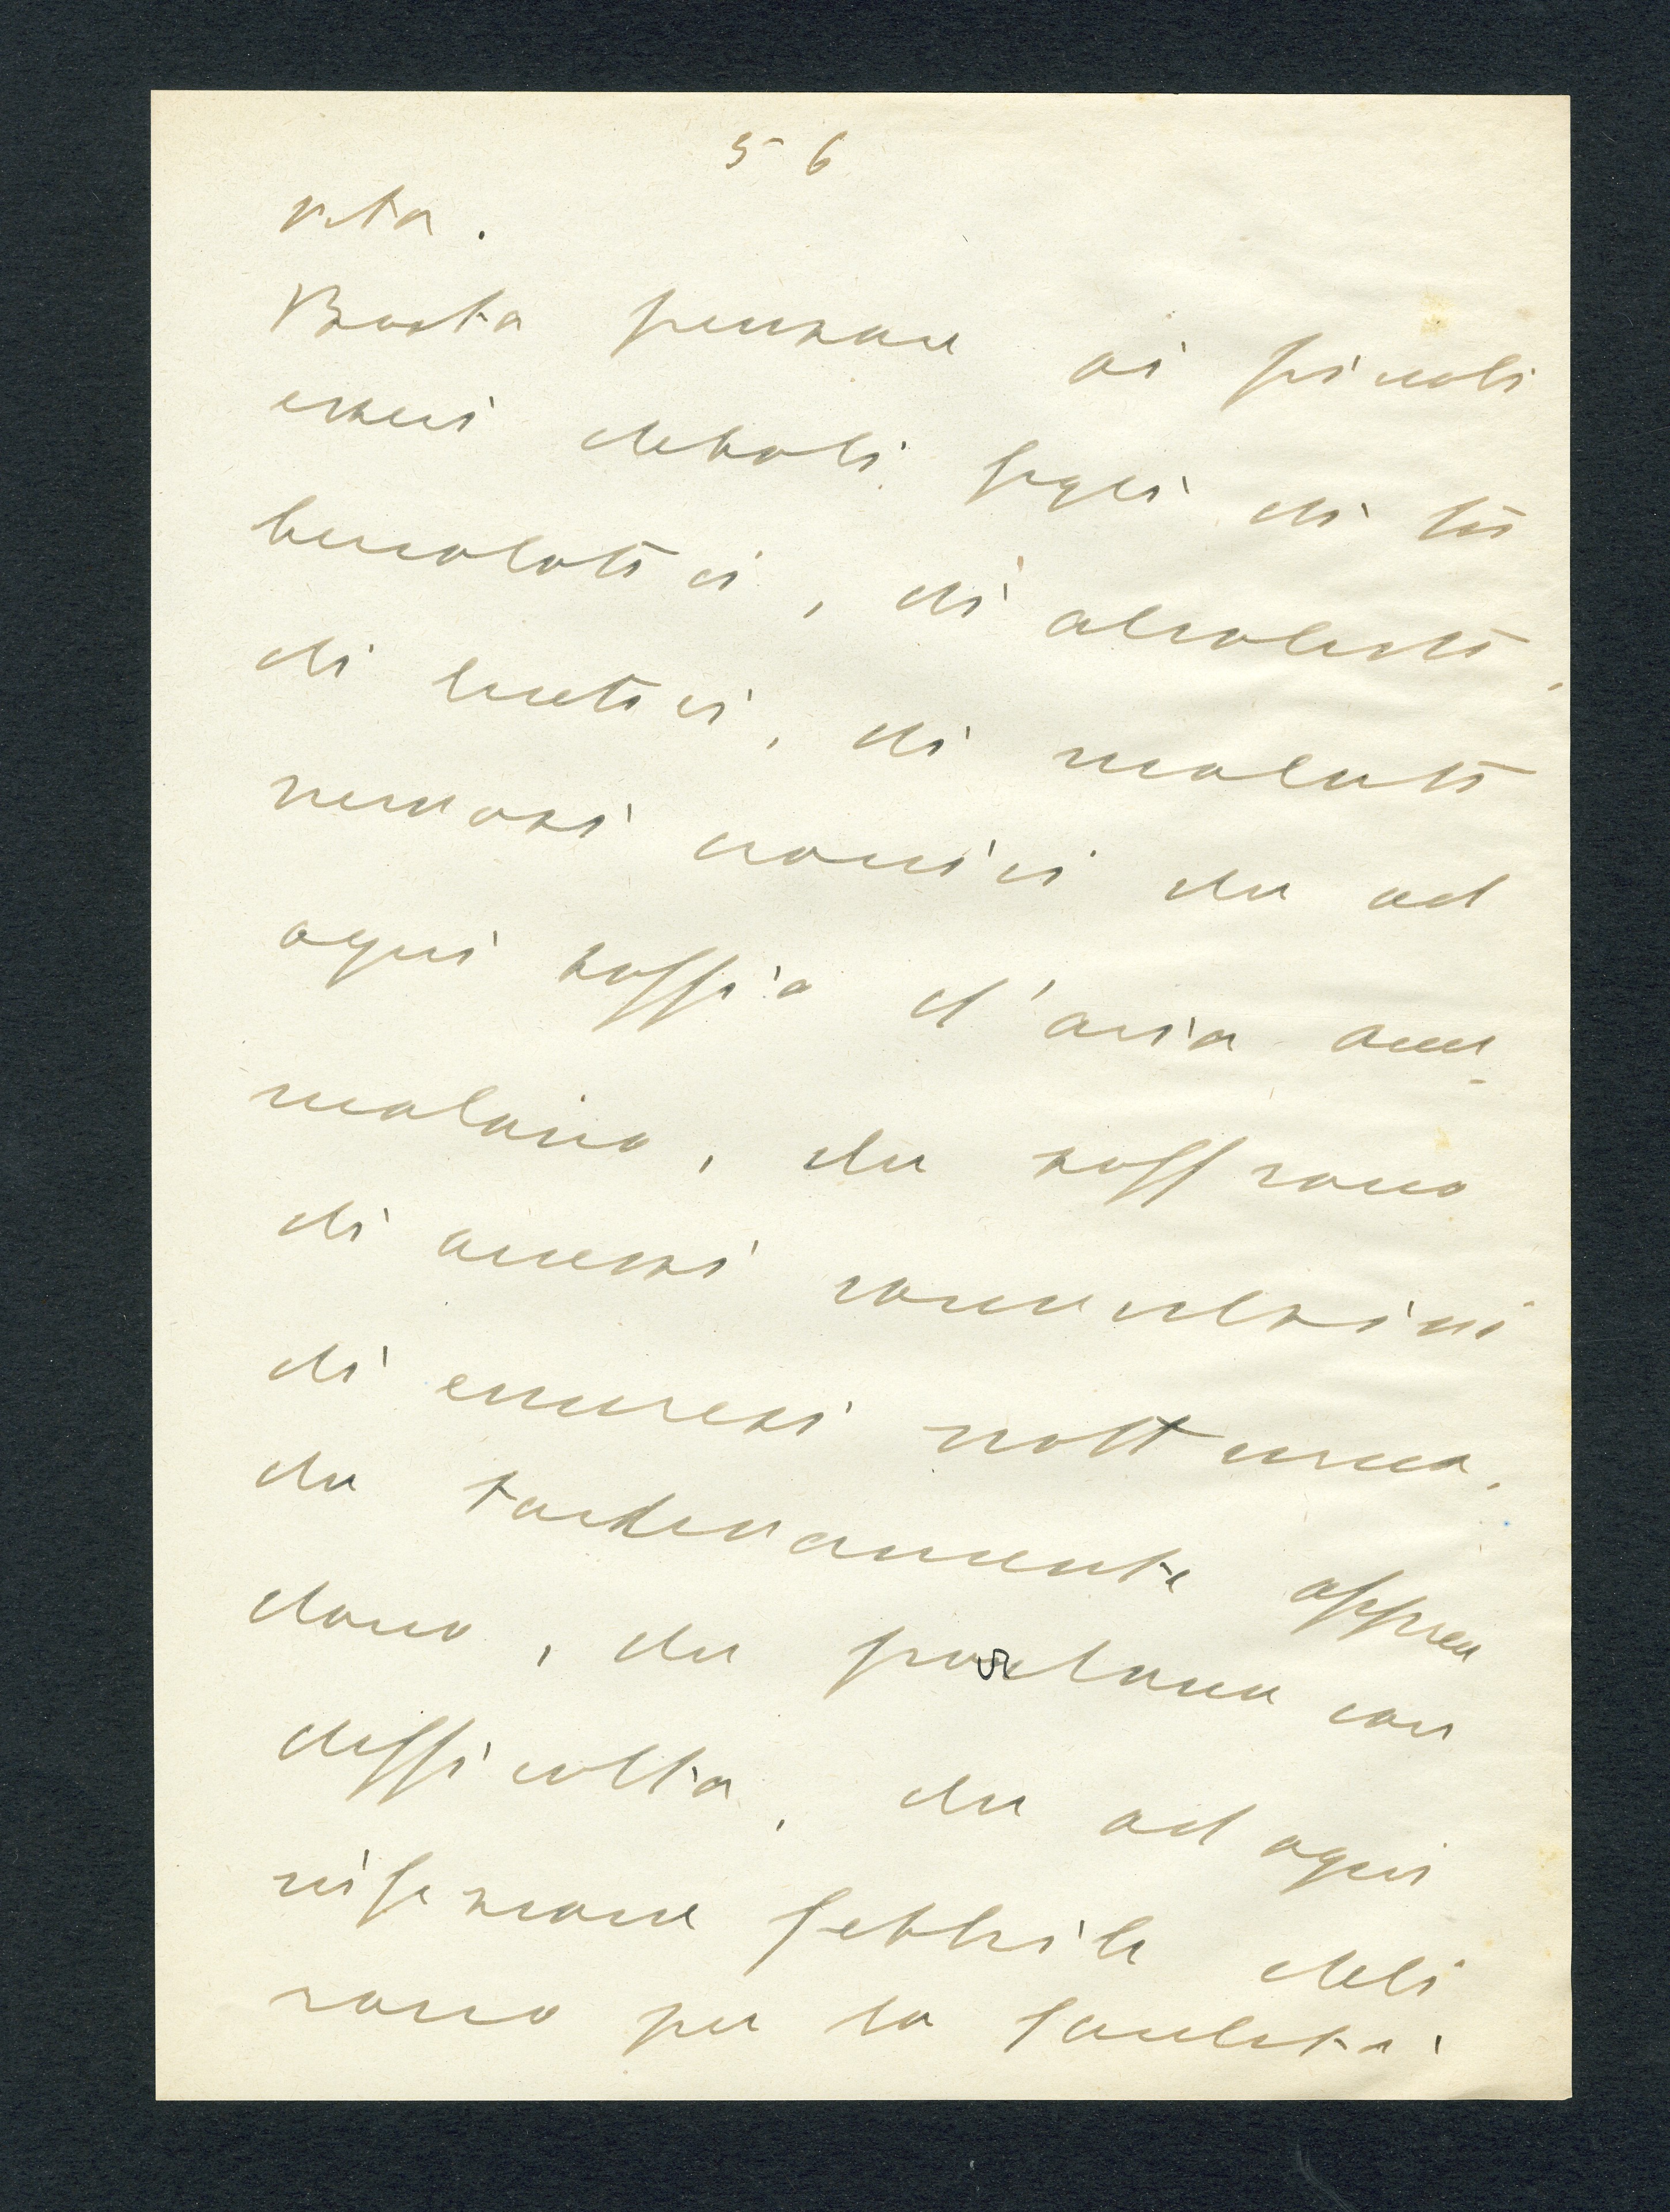 56
vita.
Basta pensare ai piccoli
esseri deboli figli di tu
bercolotici, di alcolisti,
di luetici, di malati
nervosi cronici che ad
ogni soffio d'aria am
malano, che soffrono
di accessi convulsivi
di enuresi notturna,
che tardivamente appren
dono, che parlano con
difficoltà, che ad ogni
infezione febbrile deli
rano per la facilità